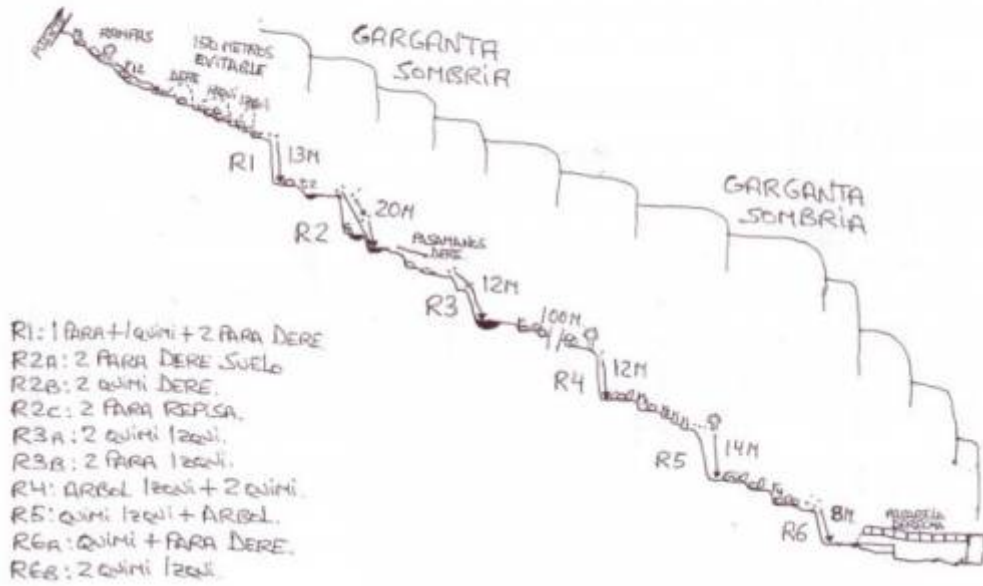 RAMPAS
150 METROS
EVITABLE
R12
DERE
IZQUI
GARGANTA
SOMBRIA
R1
13M
R2
20M
PASAMANOS
DERE
R3
12M
100M
GARGANTA
SOMBRIA
R4
12M
R5
14M
R6
8M
R1: 1 PARA + 1 QUIMI + 2 PARA DERE
R2A: 2 PARA DERE SUELO
R2B: 2 QUIMI DERE.
R2C: 2 PARA REPISA.
R3A: 2 QUIMI IZQUI.
R3B: 2 PARA IZQUI.
R4: ARBOL IZQUI + 2 QUIMI.
R5: QUIMI IZQUI + ARBOL.
R6A: QUIMI + PARA DERE.
R6B: 2 QUIMI IZQUI.